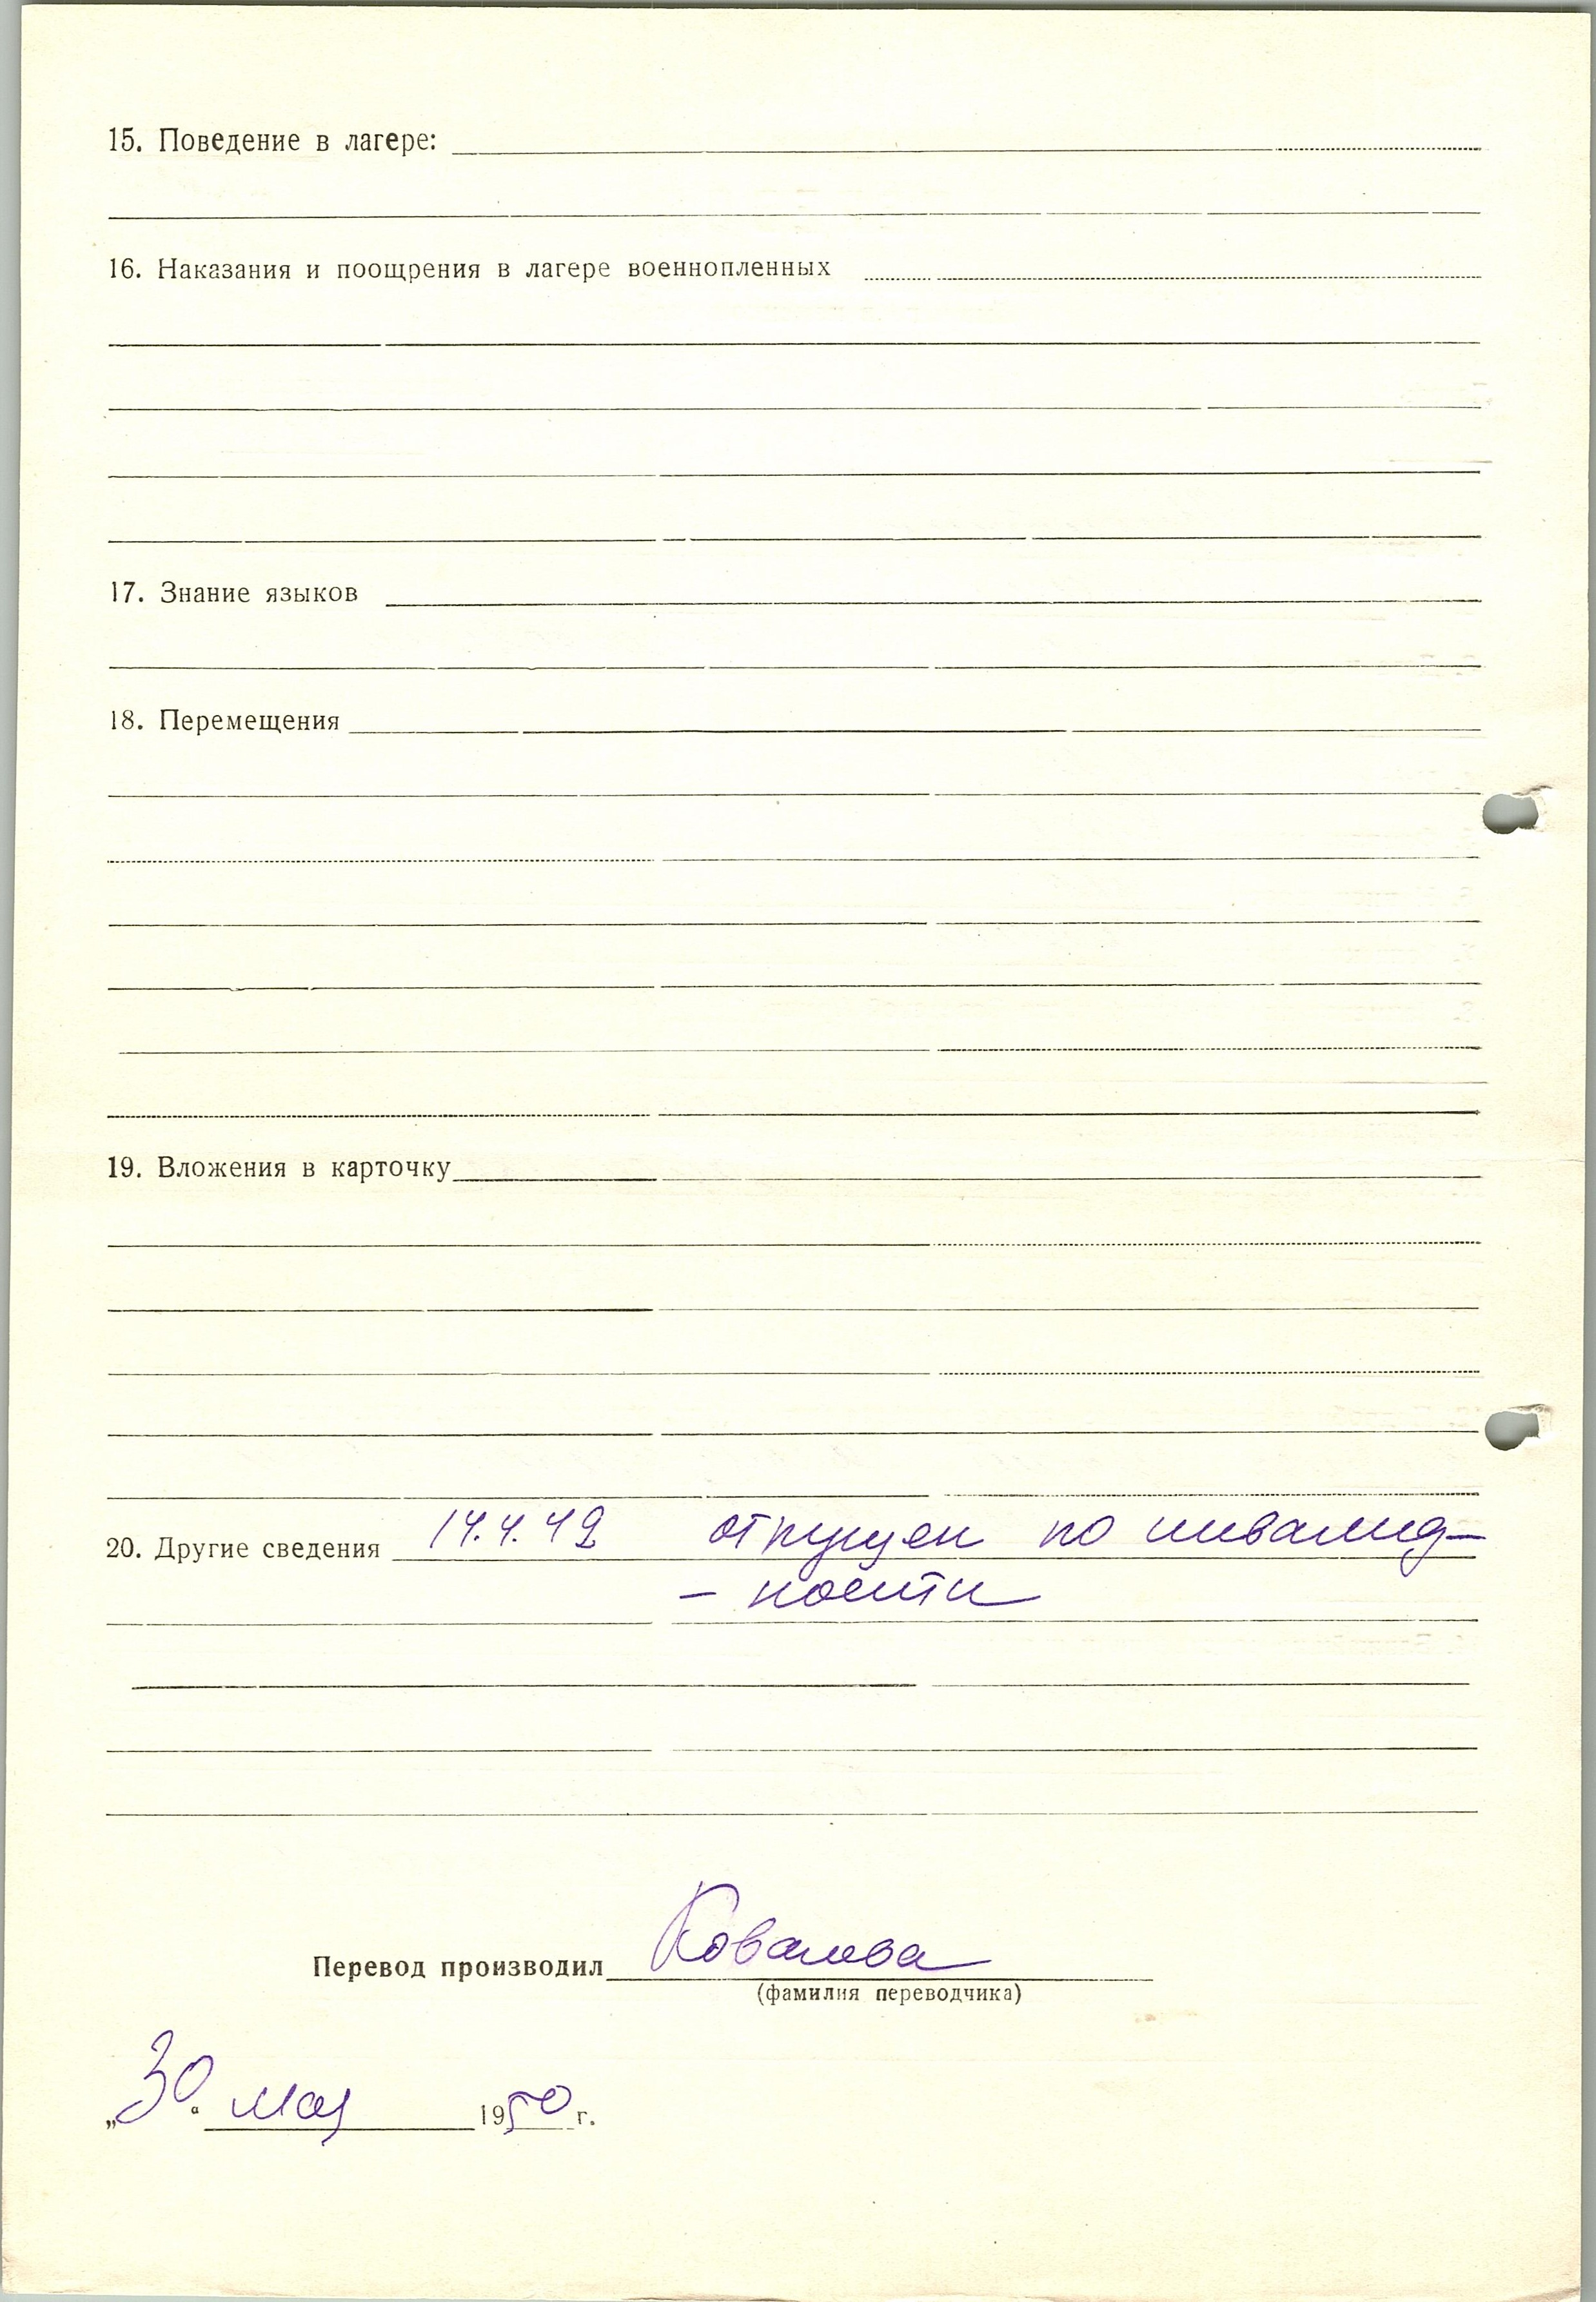 15. Поведение в лагере:
16. Наказания и поощрения в лагере военнопленных
17. Знание языков
18. Перемещения
19. Вложения в карточку
20. Другие сведения 14.4.42 отпущен по инвалид-
- ности
Перевод производил Ковалева
(фамилия переводчика)
„30“ мая 1950 г.